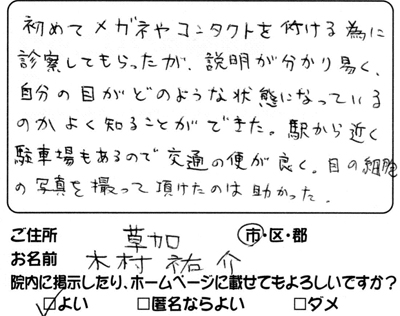 初めてメガネやコンタクトを付ける為に
診察してもらったが、説明が分かり易く、
自分の目がどのような状態になっている
のかよく知ることができた。駅から近く
駐車場もあるので交通の便が良く。目の細胞
の写真を撮って頂けたのは助かった。
ご住所 草加 市・区・郡
お名前 木村祐介
院内に掲示したり、ホームページに載せてもよろしいですか?
☑よい □匿名ならよい □ダメ